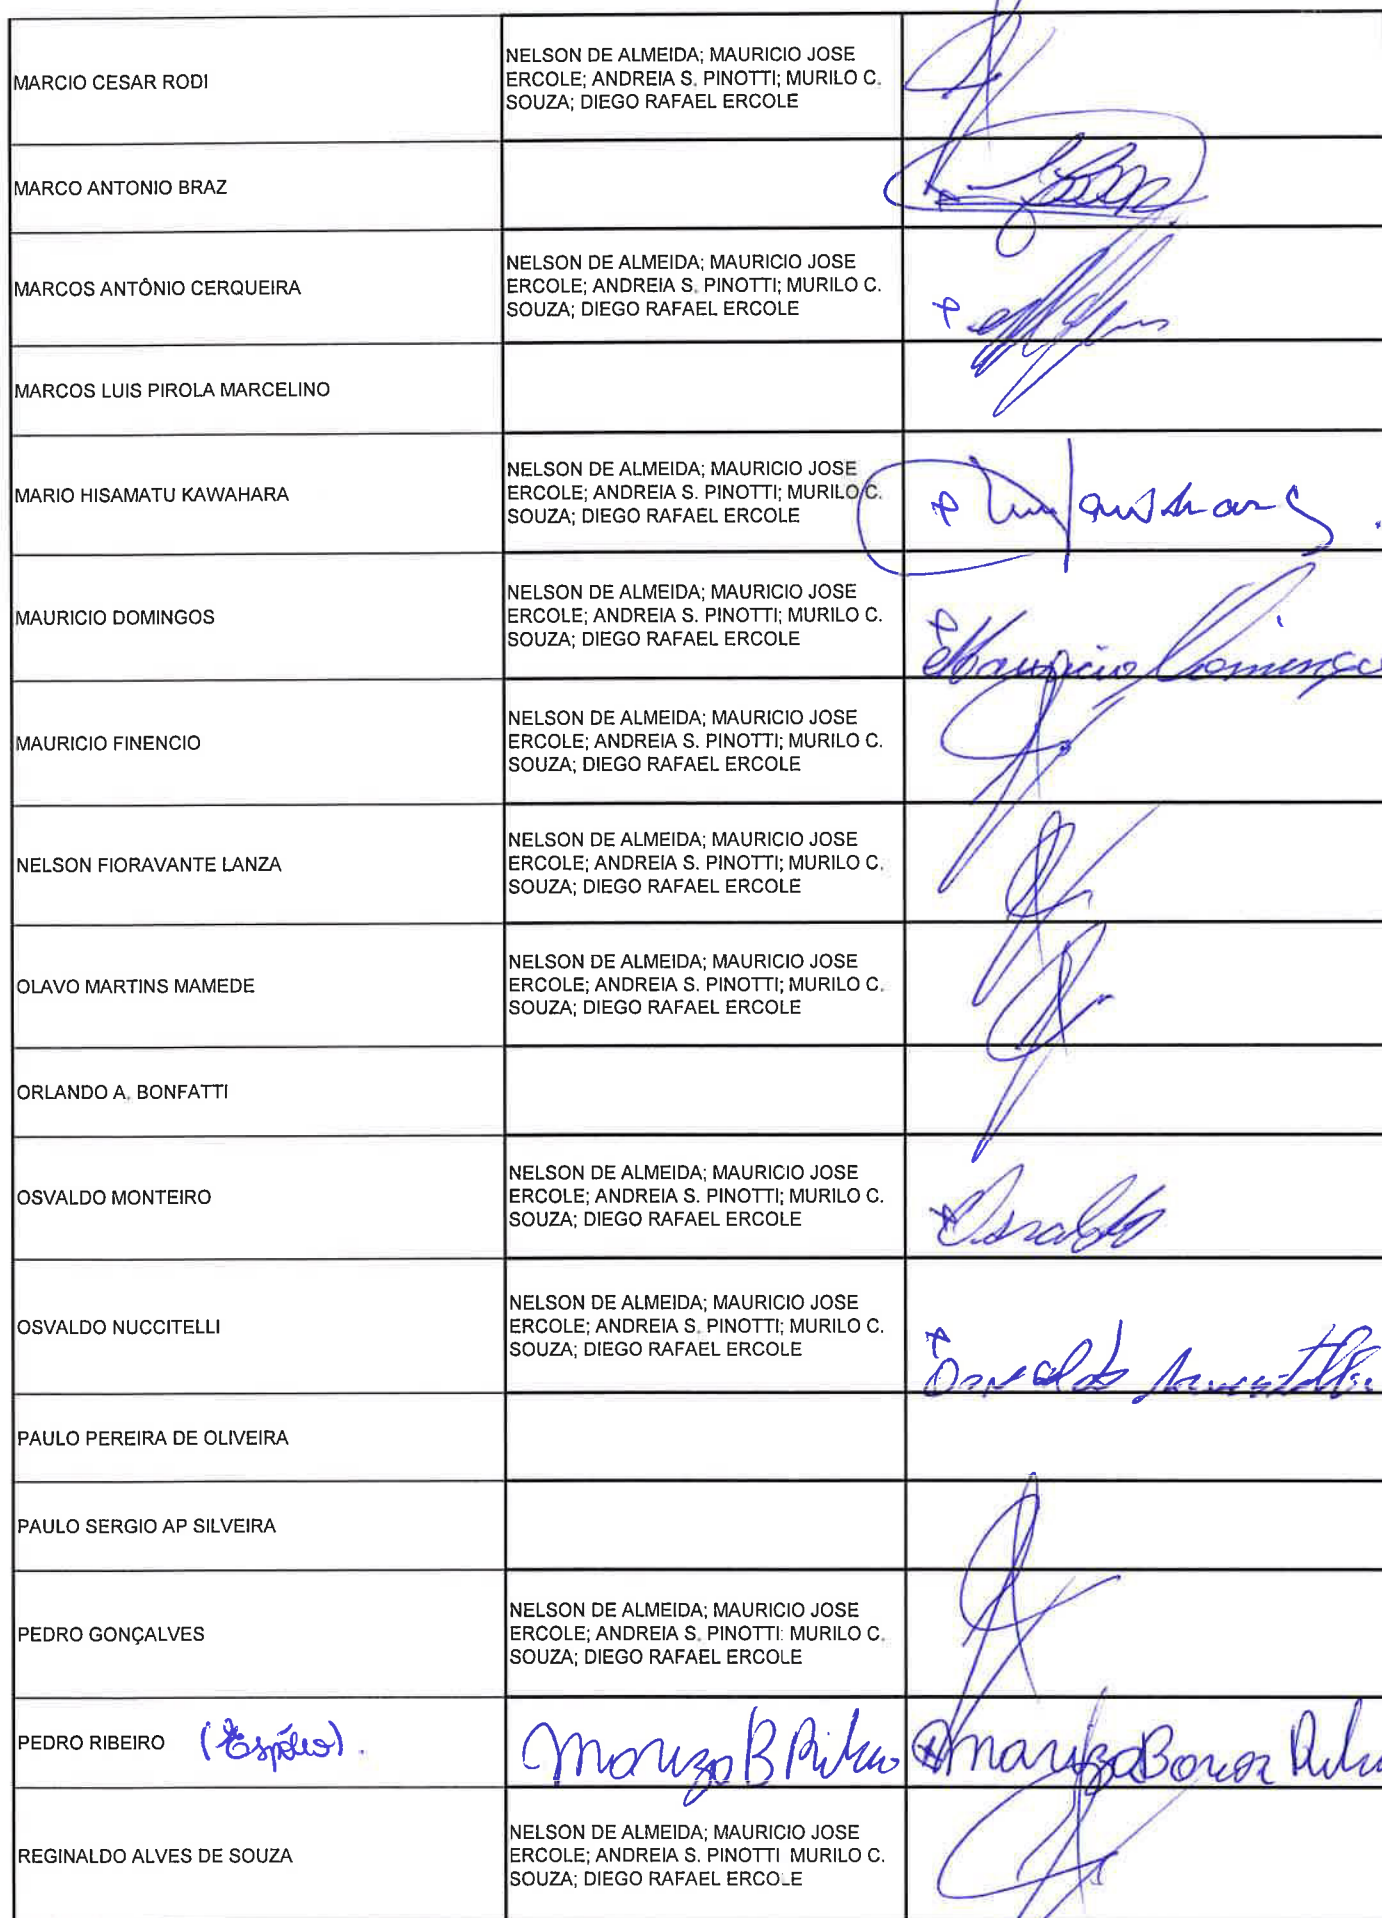 MARCIO CESAR RODI
NELSON DE ALMEIDA; MAURICIO JOSE
ERCOLE; ANDREIA S. PINOTTI; MURILO C.
SOUZA; DIEGO RAFAEL ERCOLE
MARCO ANTONIO BRAZ
MARCOS ANTÔNIO CERQUEIRA
NELSON DE ALMEIDA; MAURICIO JOSE
ERCOLE; ANDREIA S. PINOTTI; MURILO C.
SOUZA; DIEGO RAFAEL ERCOLE
MARCOS LUIS PIROLA MARCELINO
MARIO HISAMATU KAWAHARA
NELSON DE ALMEIDA; MAURICIO JOSE
ERCOLE; ANDREIA S. PINOTTI; MURILO C.
SOUZA; DIEGO RAFAEL ERCOLE
MAURICIO DOMINGOS
NELSON DE ALMEIDA; MAURICIO JOSE
ERCOLE; ANDREIA S. PINOTTI; MURILO C.
SOUZA; DIEGO RAFAEL ERCOLE
Mauricio Domingo
MAURICIO FINENCIO
NELSON DE ALMEIDA; MAURICIO JOSE
ERCOLE; ANDREIA S. PINOTTI; MURILO C.
SOUZA; DIEGO RAFAEL ERCOLE
NELSON FIORAVANTE LANZA
NELSON DE ALMEIDA; MAURICIO JOSE
ERCOLE; ANDREIA S. PINOTTI; MURILO C.
SOUZA; DIEGO RAFAEL ERCOLE
OLAVO MARTINS MAMEDE
NELSON DE ALMEIDA; MAURICIO JOSE
ERCOLE; ANDREIA S. PINOTTI; MURILO C.
SOUZA; DIEGO RAFAEL ERCOLE
ORLANDO A. BONFATTI
OSVALDO MONTEIRO
NELSON DE ALMEIDA; MAURICIO JOSE
ERCOLE; ANDREIA S. PINOTTI; MURILO C.
SOUZA; DIEGO RAFAEL ERCOLE
Osvaldo
OSVALDO NUCCITELLI
NELSON DE ALMEIDA; MAURICIO JOSE
ERCOLE; ANDREIA S. PINOTTI; MURILO C.
SOUZA; DIEGO RAFAEL ERCOLE
Osvaldo Nuccitelli
PAULO PEREIRA DE OLIVEIRA
PAULO SERGIO AP SILVEIRA
PEDRO GONÇALVES
NELSON DE ALMEIDA; MAURICIO JOSE
ERCOLE; ANDREIA S. PINOTTI; MURILO C.
SOUZA; DIEGO RAFAEL ERCOLE
PEDRO RIBEIRO (Espólio).
Mariza B Ribeiro
Mariza
REGINALDO ALVES DE SOUZA
NELSON DE ALMEIDA; MAURICIO JOSE
ERCOLE; ANDREIA S. PINOTTI MURILO C.
SOUZA; DIEGO RAFAEL ERCOLE